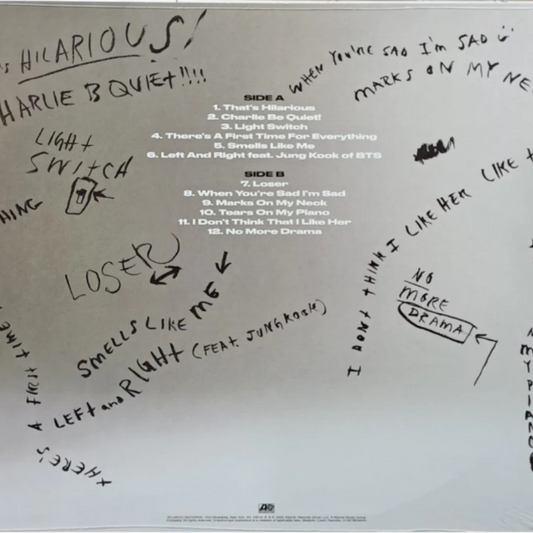 'S HILARIOUS!
HARLIE B QUIET!!!!
WHEN YOU'RE SAD I'm SAD
MARKS ON MY NE
LIGHT
SWITCH
SIDE A
1. That's Hilarious
2. Charlie Be Quiet!
3. Light Switch
4. There's A First Time For Everything
5. Smells Like Me
6. Left And Right feat. Jung Kook of BTS
SIDE B
7. Loser
8. When You're Sad I'm Sad
9. Marks On My Neck
10. Tears On My Piano
11. I Don't Think That I Like Her
12. No More Drama
HING
LOSER
SMELLS LIKE ME
LEFT and RIGHT (FEAT. JUNGKOOK)
THERE'S A FIRST TIME
I DONT THINK I LIKE HER LIKE T
NO
MORE
DRAMA
MY PIANO